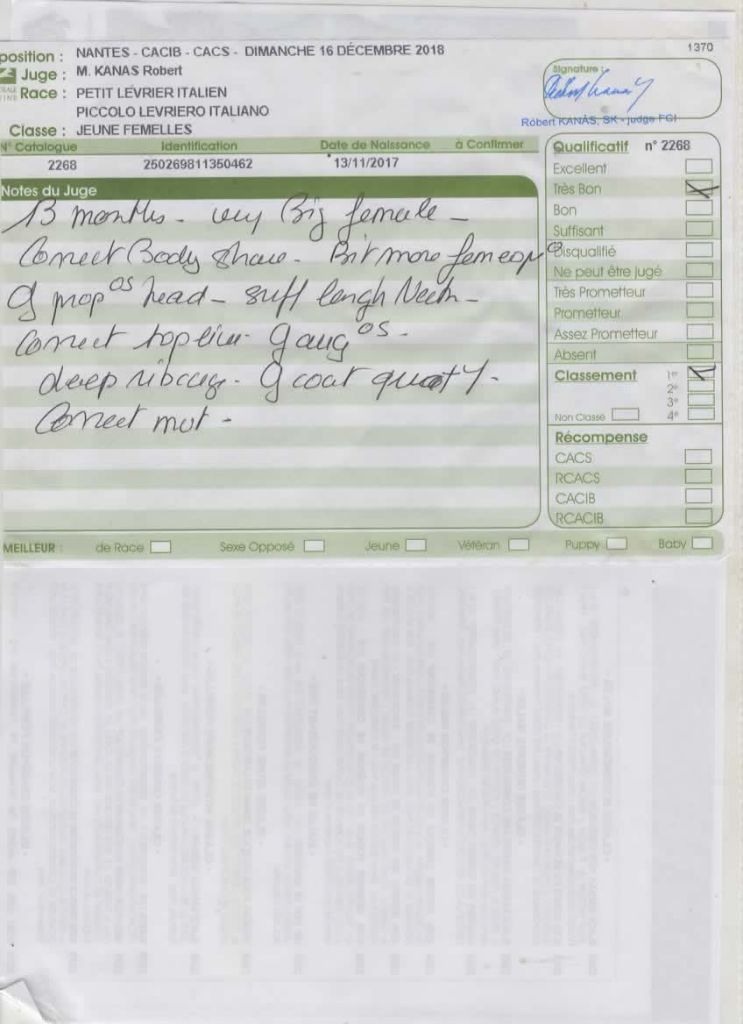 position : NANTES - CACIB - CACS - DIMANCHE 16 DÉCEMBRE 2018
1370
Juge : M. KANAS Robert
Race : PETIT LÉVRIER ITALIEN
PICCOLO LEVRIERO ITALIANO
Classe : JEUNE FEMELLES
Signature :
Robert KANÁS, SK - judge FCI
N° Catalogue Identification Date de Naissance à Confirmer
2268 250269811350462 13/11/2017
Notes du Juge
13 months - very Big female -
Correct Body - Bit more
g prop os head - suff lengh Neck -
correct topline - g ang os -
deep ribcage - g coat
Correct
Qualificatif n° 2268
Excellent
Très Bon
Bon
Suffisant
Disqualifié
Ne peut être jugé
Très Prometteur
Prometteur
Assez Prometteur
Absent
Classement 1er
2e
3e
Non Classé 4e
Récompense
CACS
RCACS
CACIB
RCACIB
MEILLEUR : de Race Sexe Opposé Jeune Vétéran Puppy Baby